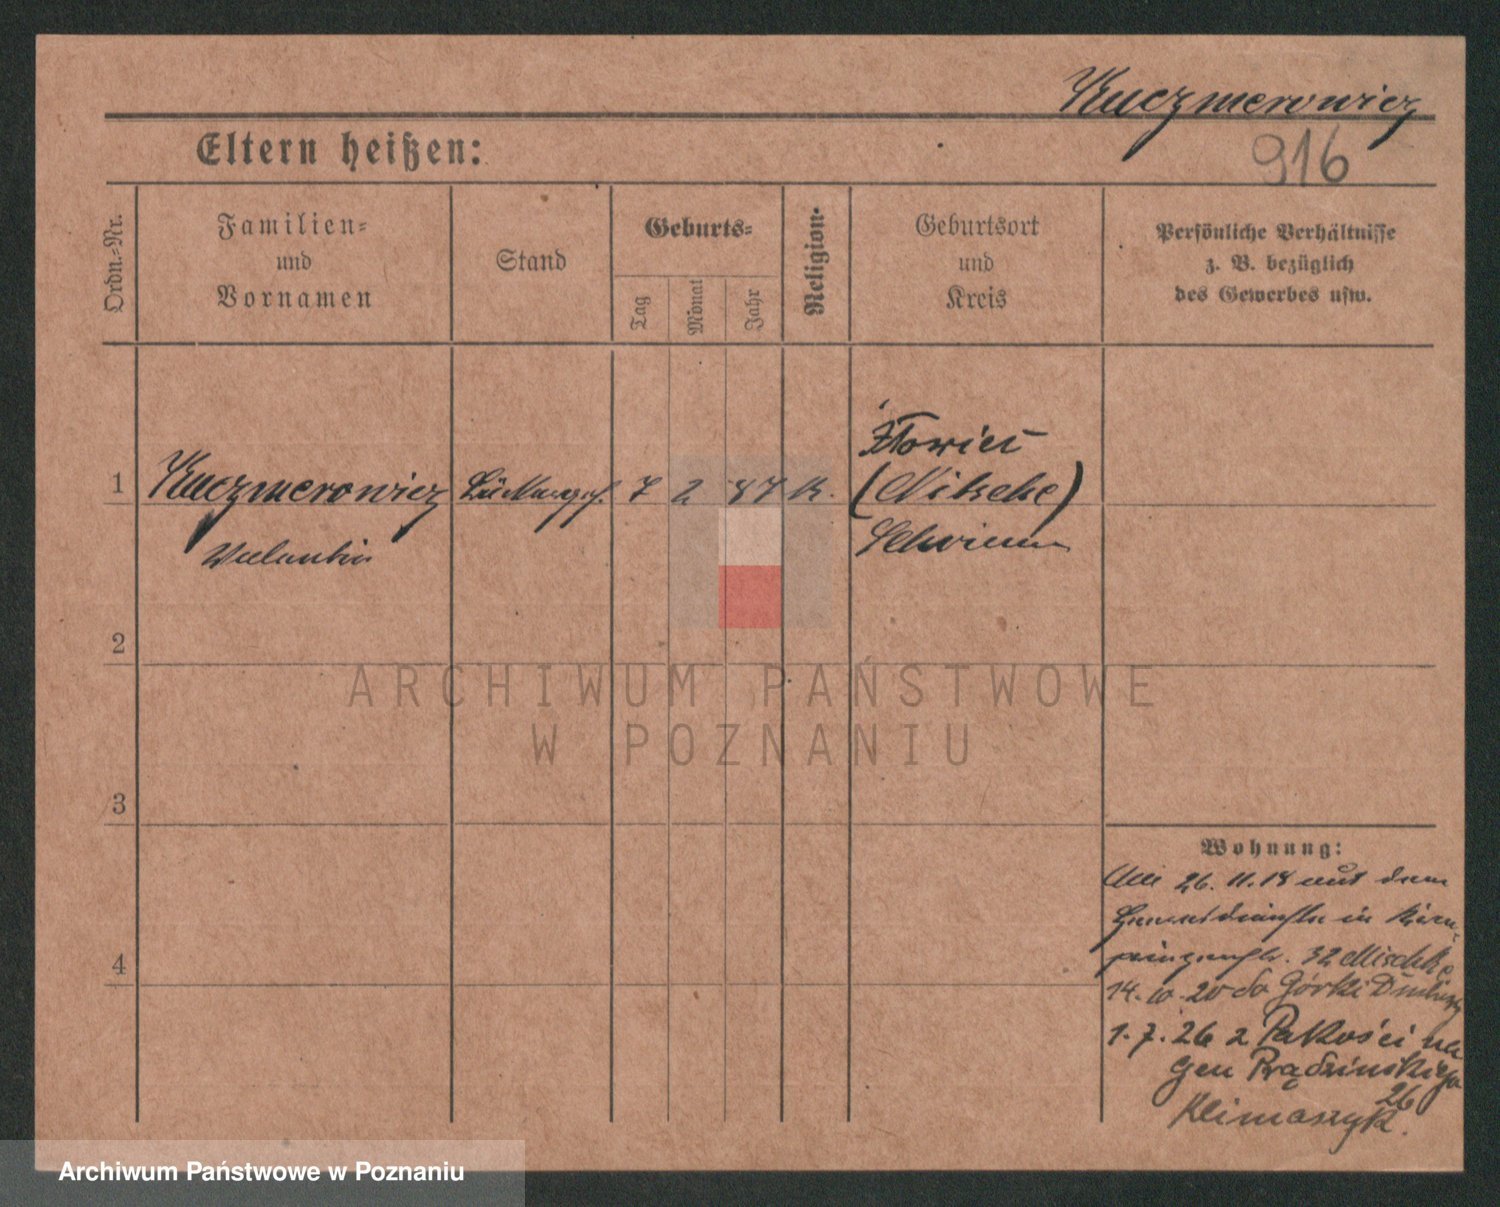 Kuczmerowicz
916
Eltern heißen:
Ordn.-Nr.
Familien-
und
Vornamen
Stand
Geburts-
Tag
Monat
Jahr
Religion.
Geburtsort
und
Kreis
Persönliche Verhältnisse
z. B. bezüglich
des Gewerbes usw.
1
Kuczmerowicz
Valentin
7 2 87 k.
(Nitsche)
Schrimm
2
3
4
Wohnung:
26. 11. 18 aus dem
in
32 Mischke
14. 10. 20 do Górki
1. 7. 26 z Pakości na
Gen Prądzinskiego
26
Klimaszyk.
ARCHIWUM PAŃSTWOWE
W POZNANIU
Archiwum Państwowe w Poznaniu